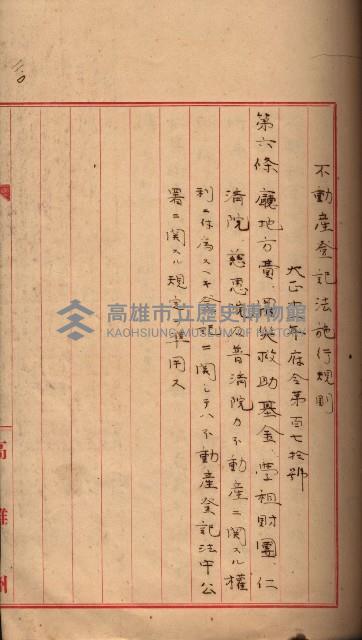 不動産登記法施行規則
大正十年府令第百七拾號
第六條 廳地方費、罹災救助基金、學租財團、仁
濟院、慈惠院及普濟院カ不動産ニ関スル權
利ニ付為スヘキ登記ニ関シテハ不動産登記法中公
署ニ関スル規定ヲ準用ス
高雄州
高雄市立歷史博物館
KAOHSIUNG MUSEUM OF HISTORY